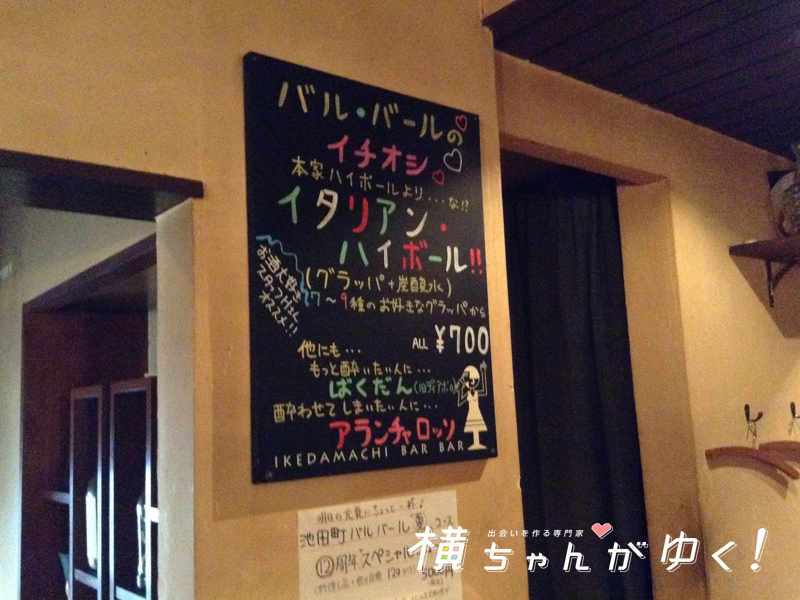 バル・バールの
イチオシ
本家ハイボールより...な!?
イタリアン・
ハイボール!!
(グラッパ+炭酸水)
お酒大好き
スタッフHさん
オススメ!!
7〜9種のお好きなグラッパから
ALL ¥700
他にも...
もっと酔いたい人に...
ばくだん
酔わせてしまいたい人に...
アランチャロッソ
IKEDAMACHI BAR BAR
明日の元気にちょっと一杯!
池田町バルバール 宴コース
⑫周年スペシャル
出会いを作る専門家
横ちゃんがゆく!